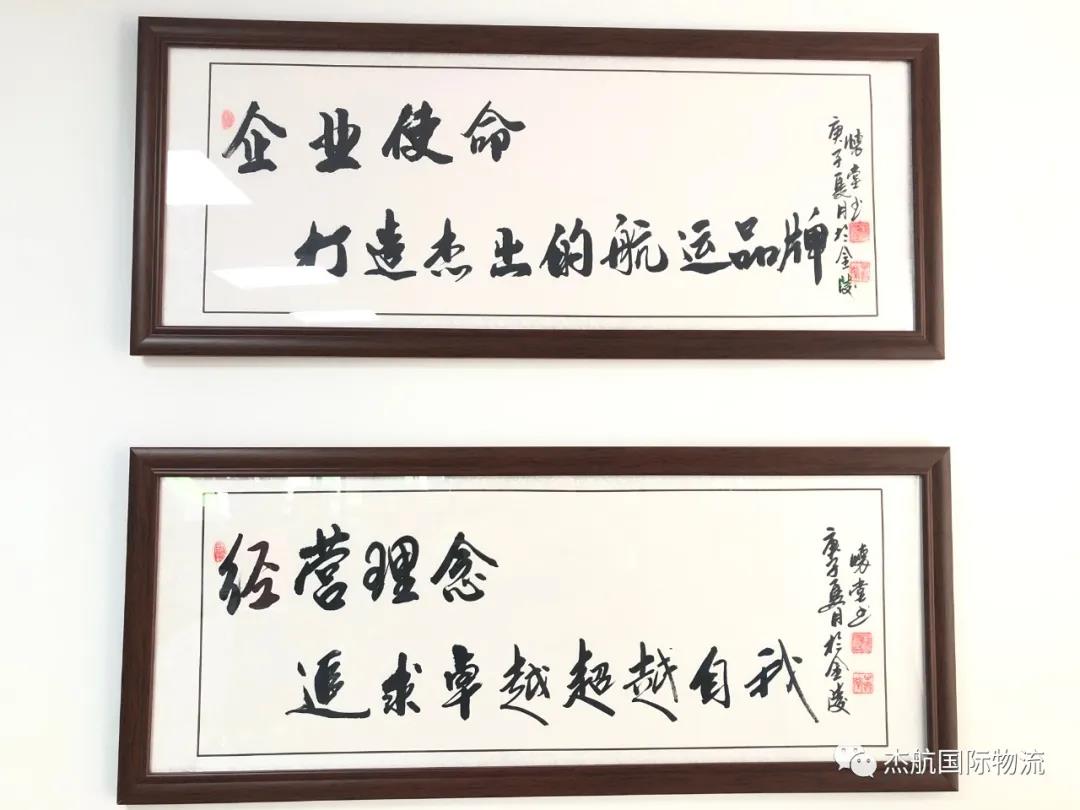 企业使命
打造杰出的航运品牌
庚子夏月于金陵
堂书
经营理念
追求卓越超越自我
庚子夏月于金陵
堂书
杰航国际物流